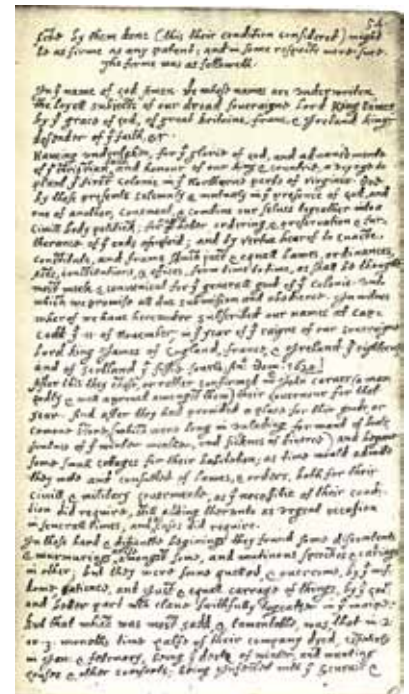 54
acte by them done (this their condition considered) might
be as firme as any patent; and in some respects more sure.
The forme was as followeth.
In yᵉ name of god Amen. We whose names are underwriten,
the loyall subjects of our dread soveraigne Lord King James
by yᵉ grace of god, of great Britaine, franc, & Ireland king,
defender of yᵉ faith, &c.
Haveing undertaken, for yᵉ glorie of god, and advancemente
of yᵉ christian and honour of our king & countrie, a voyage to
plant yᵉ first colonie in yᵉ Northerne parts of Virginia. doe
by these presents solemnly & mutualy in yᵉ presence of god, and
one of another, covenant, & combine our selves togeather into a
civill body politick; for better ordering, & preservation & fur-
therance of yᵉ ends aforesaid; and by vertue hearof to enacte,
constitute, and frame shuch just & equall lawes, ordinances,
Acts, constitutions, & offices, from time to time, as shall be thought
most meete & convenient for yᵉ generall good of yᵉ colonie: unto
which we promise all due submission and obedience. In witnes
wherof we have hereunder subscribed our names at Cap-
Codd yᵉ .11. of November, in yᵉ year of yᵉ raigne of our soveraigne
Lord King James of England, france, & Ireland yᵉ eighteenth
and of Scotland yᵉ fiftie fourth. Ano: Dom. 1620.]
After this they chose, or rather confirmed mr John Carver (a man
godly & well approved amongst them) their Governour for that
year. And after they had provided a place for their goods, or
comone store, (which were long in unlading for want of boats,
foulnes of yᵉ winter weather, and sicknes of diverce) and begune
some small cottages for their habitation; as time would admitte
they mette and consulted of lawes, & orders, both for their
civill & military Govermente, as yᵉ necessitie of their condi-
tion did require, still adding therunto as urgent occasion
in severall times, and as cases did require.
In these hard & difficulte beginings they found some discontents
& murmurings amongst some, and mutinous speeches & carriags
in other; but they were soone quelled, & overcome, by yᵉ wis-
dome, patience, and just & equall carrage of things, by yᵉ Govr
and better part wch clave faithfully togeather in yᵉ maine.
But that which was most sadd & lamentable, was, that in 2.
or 3. moneths time halfe of their company dyed, espetialy
in Jan: & february, being yᵉ depth of winter, and wanting
houses & other comforts; being infected with yᵉ scurvie &